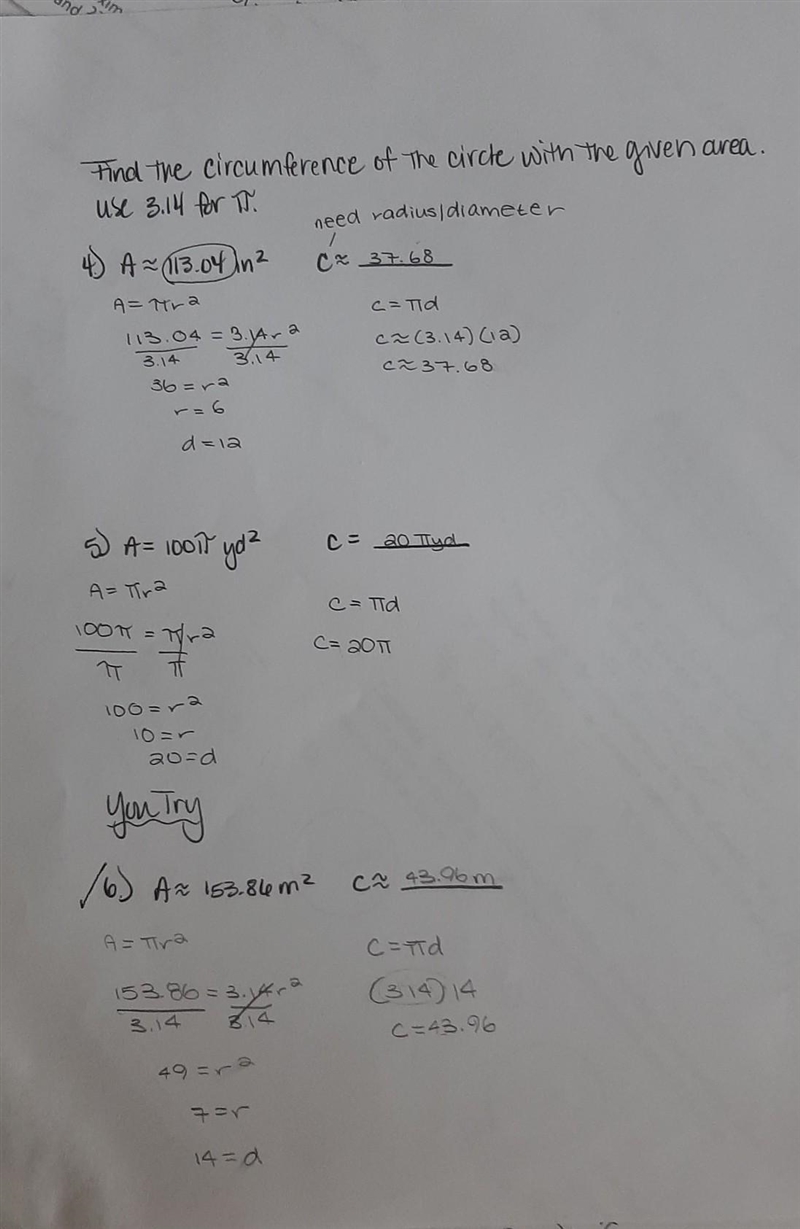 Find the circumference of the circle with the given area.
use 3.14 for π.
need radius/diameter
4) A ≈ 113.04 in² C ≈ 37.68
A = πr²
113.04 = 3.14r²
3.14 3.14
36 = r²
r = 6
d = 12
C = πd
C ≈ (3.14)(12)
C ≈ 37.68
5) A = 100π yd² C = 20πyd
A = πr²
100π = πr²
π π
100 = r²
10 = r
20 = d
C = πd
C = 20π
You Try
6) A ≈ 153.86 m² C ≈ 43.96 m
A = πr²
153.86 = 3.14r²
3.14 3.14
49 = r²
7 = r
14 = d
C = πd
(3.14)14
C = 43.96